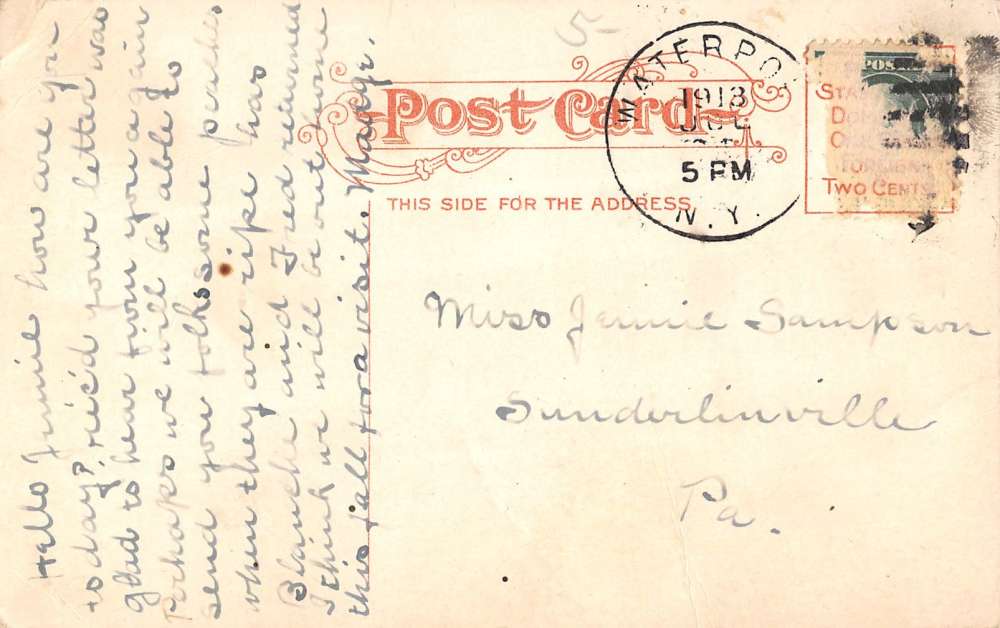 Hello Jennie how are you
today? rec'd your letter was
glad to hear from you again
Perhaps we will be able to
send you folks some peaches
when they are ripe has
Blanche and Fred returned
I think we will be out home
this fall for a visit. Mary.
5
Post Card
THIS SIDE FOR THE ADDRESS
WATERPO
1913
5 PM
N.Y.
POS
TWO CENTS
Miss Jennie Sampson
Sunderlinville
Pa.